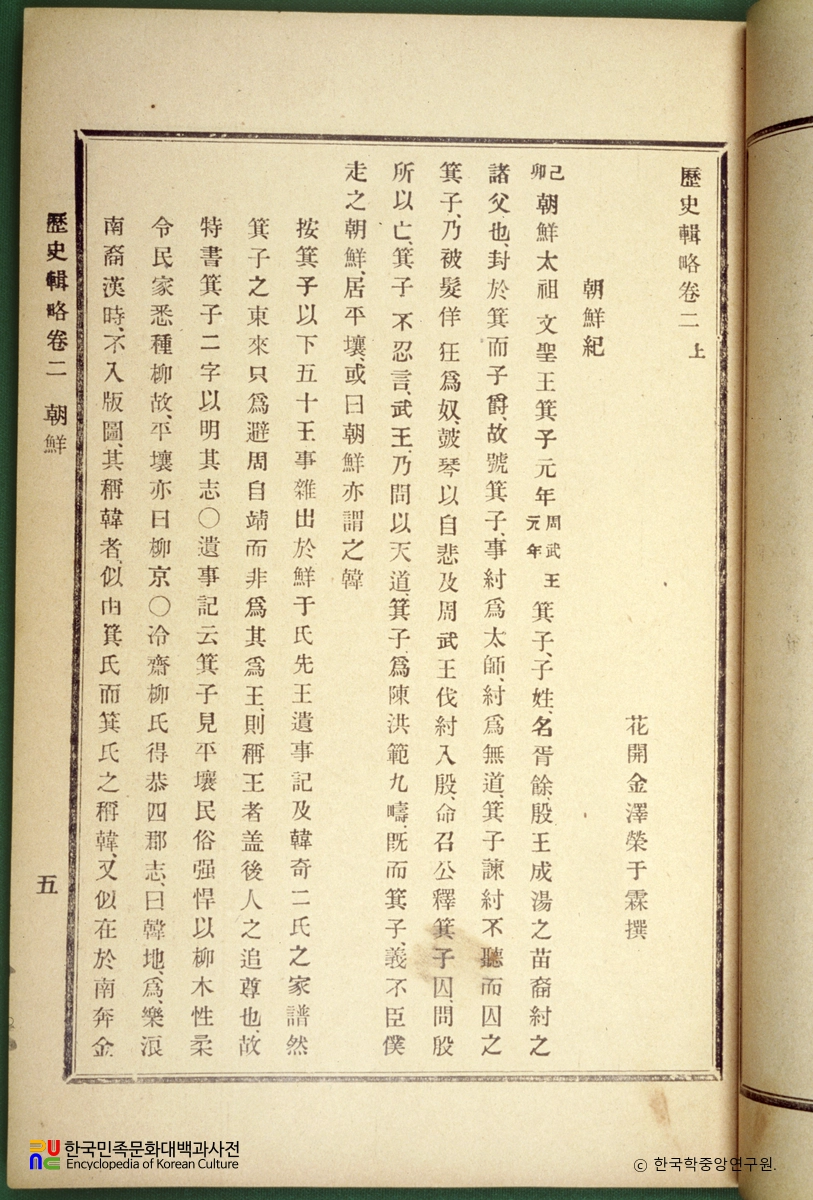 歷史輯略卷二 上
花開金澤榮于霖撰
朝鮮紀
己卯 朝鮮太祖文聖王箕子元年 周武王元年 箕子、子姓、名胥餘、殷王成湯之苗裔紂之
諸父也、封於箕而子爵、故號箕子、事紂爲太師、紂爲無道、箕子諫紂不聽而囚之
箕子、乃被髮佯狂爲奴、鼓琴以自悲及周武王伐紂入殷、命召公釋箕子囚、問殷
所以亡、箕子不忍言、武王、乃問以天道、箕子爲陳洪範九疇、旣而箕子、義不臣僕
走之朝鮮、居平壤、或曰朝鮮亦謂之韓
按箕子以下五十王事雜出於鮮于氏先王遺事記及韓奇二氏之家譜然
箕子之東來只爲避周自靖而非爲其爲王、則稱王者盖後人之追尊也、故
特書箕子二字以明其志〇遺事記云箕子見平壤民俗强悍以柳木性柔
令民家悉種柳故、平壤亦曰柳京〇冷齋柳氏得恭四郡志、曰韓地、爲、樂浪
南裔漢時、不入版圖、其稱韓者、似由箕氏而箕氏之稱韓、又似在於南奔金
歷史輯略卷二 朝鮮
五
한국민족문화대백과사전
Encyclopedia of Korean Culture
ⓒ 한국학중앙연구원.